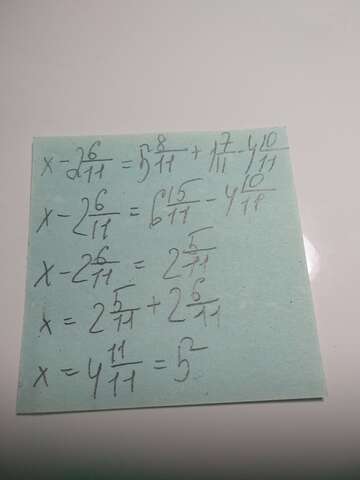 x - 2 6/11 = 5 8/11 + 1 7/11 - 4 10/11
x - 2 6/11 = 6 15/11 - 4 10/11
x - 2 6/11 = 2 5/11
x = 2 5/11 + 2 6/11
x = 4 11/11 = 5